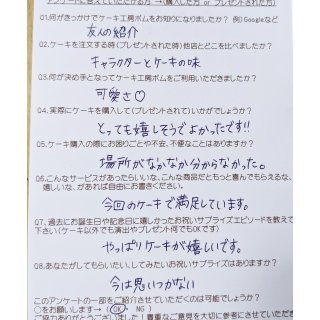 アンケートに答えていただける方→(購入した方 or プレゼントされた方)
Q1.何がきっかけでケーキ工房ボムをお知りになりましたか? 例)Googleなど
友人の紹介
Q2.ケーキを注文する時(プレゼントされた時)他店とどこを比べましたか?
キャラクターとケーキの味
Q3.何が決め手となってケーキ工房ボムをご利用いただきましたか?
可愛さ♡
Q4.実際にケーキを購入して(プレゼントされて)いかがでしょうか?
とっても嬉しそうでよかったです!!
Q5.ケーキ購入の際にお困りごとや不安、不便なことはありますか?
場所がなかなか分からなかった。
Q6.こんなサービスがあったらいいな、こんな商品だともっと喜んでもらえるな、
嬉しいな、があれば自由にお書きください。
今回のケーキで満足しています。
Q7、過去にお誕生日や記念日に嬉しかったお祝いサプライズエピソードを教えて
下さい(ケーキ以外でも演出やプレゼント何でもOKです)
やっぱりケーキが嬉しいです。
Q8、あなたがしてもらいたい、してみたいお祝いサプライズはありますか?
今は思いつかない
このアンケートの一部をご紹介させていただくのは可能でしょうか?
○をお願いします→( OK NG )
ご協力ありがとうございました!貴重なご意見を大切に参考にさせていただき